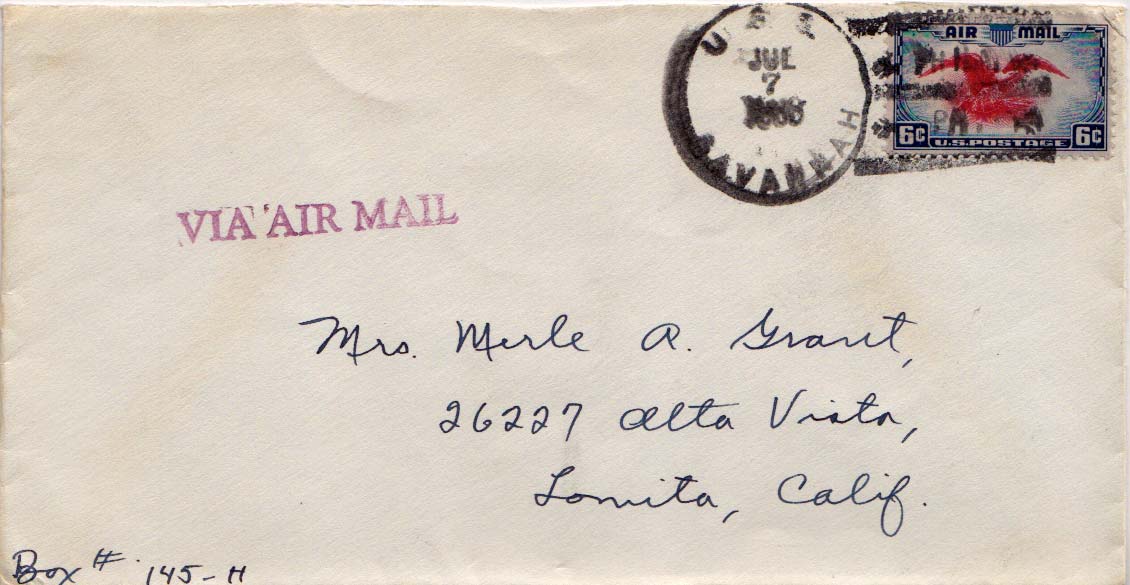 U S S
JUL
7
SAVANNAH
AIR MAIL
6¢ U.S. POSTAGE 6¢
VIA AIR MAIL
Mrs. Merle A. Grant,
26227 Alta Vista,
Lomita, Calif.
Box # 145-H